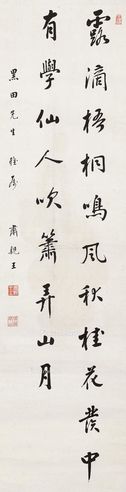 露滴梧桐鳴風秋桂花發中
有學仙人吹簫弄山月
黑田先生雅屬
肅親王